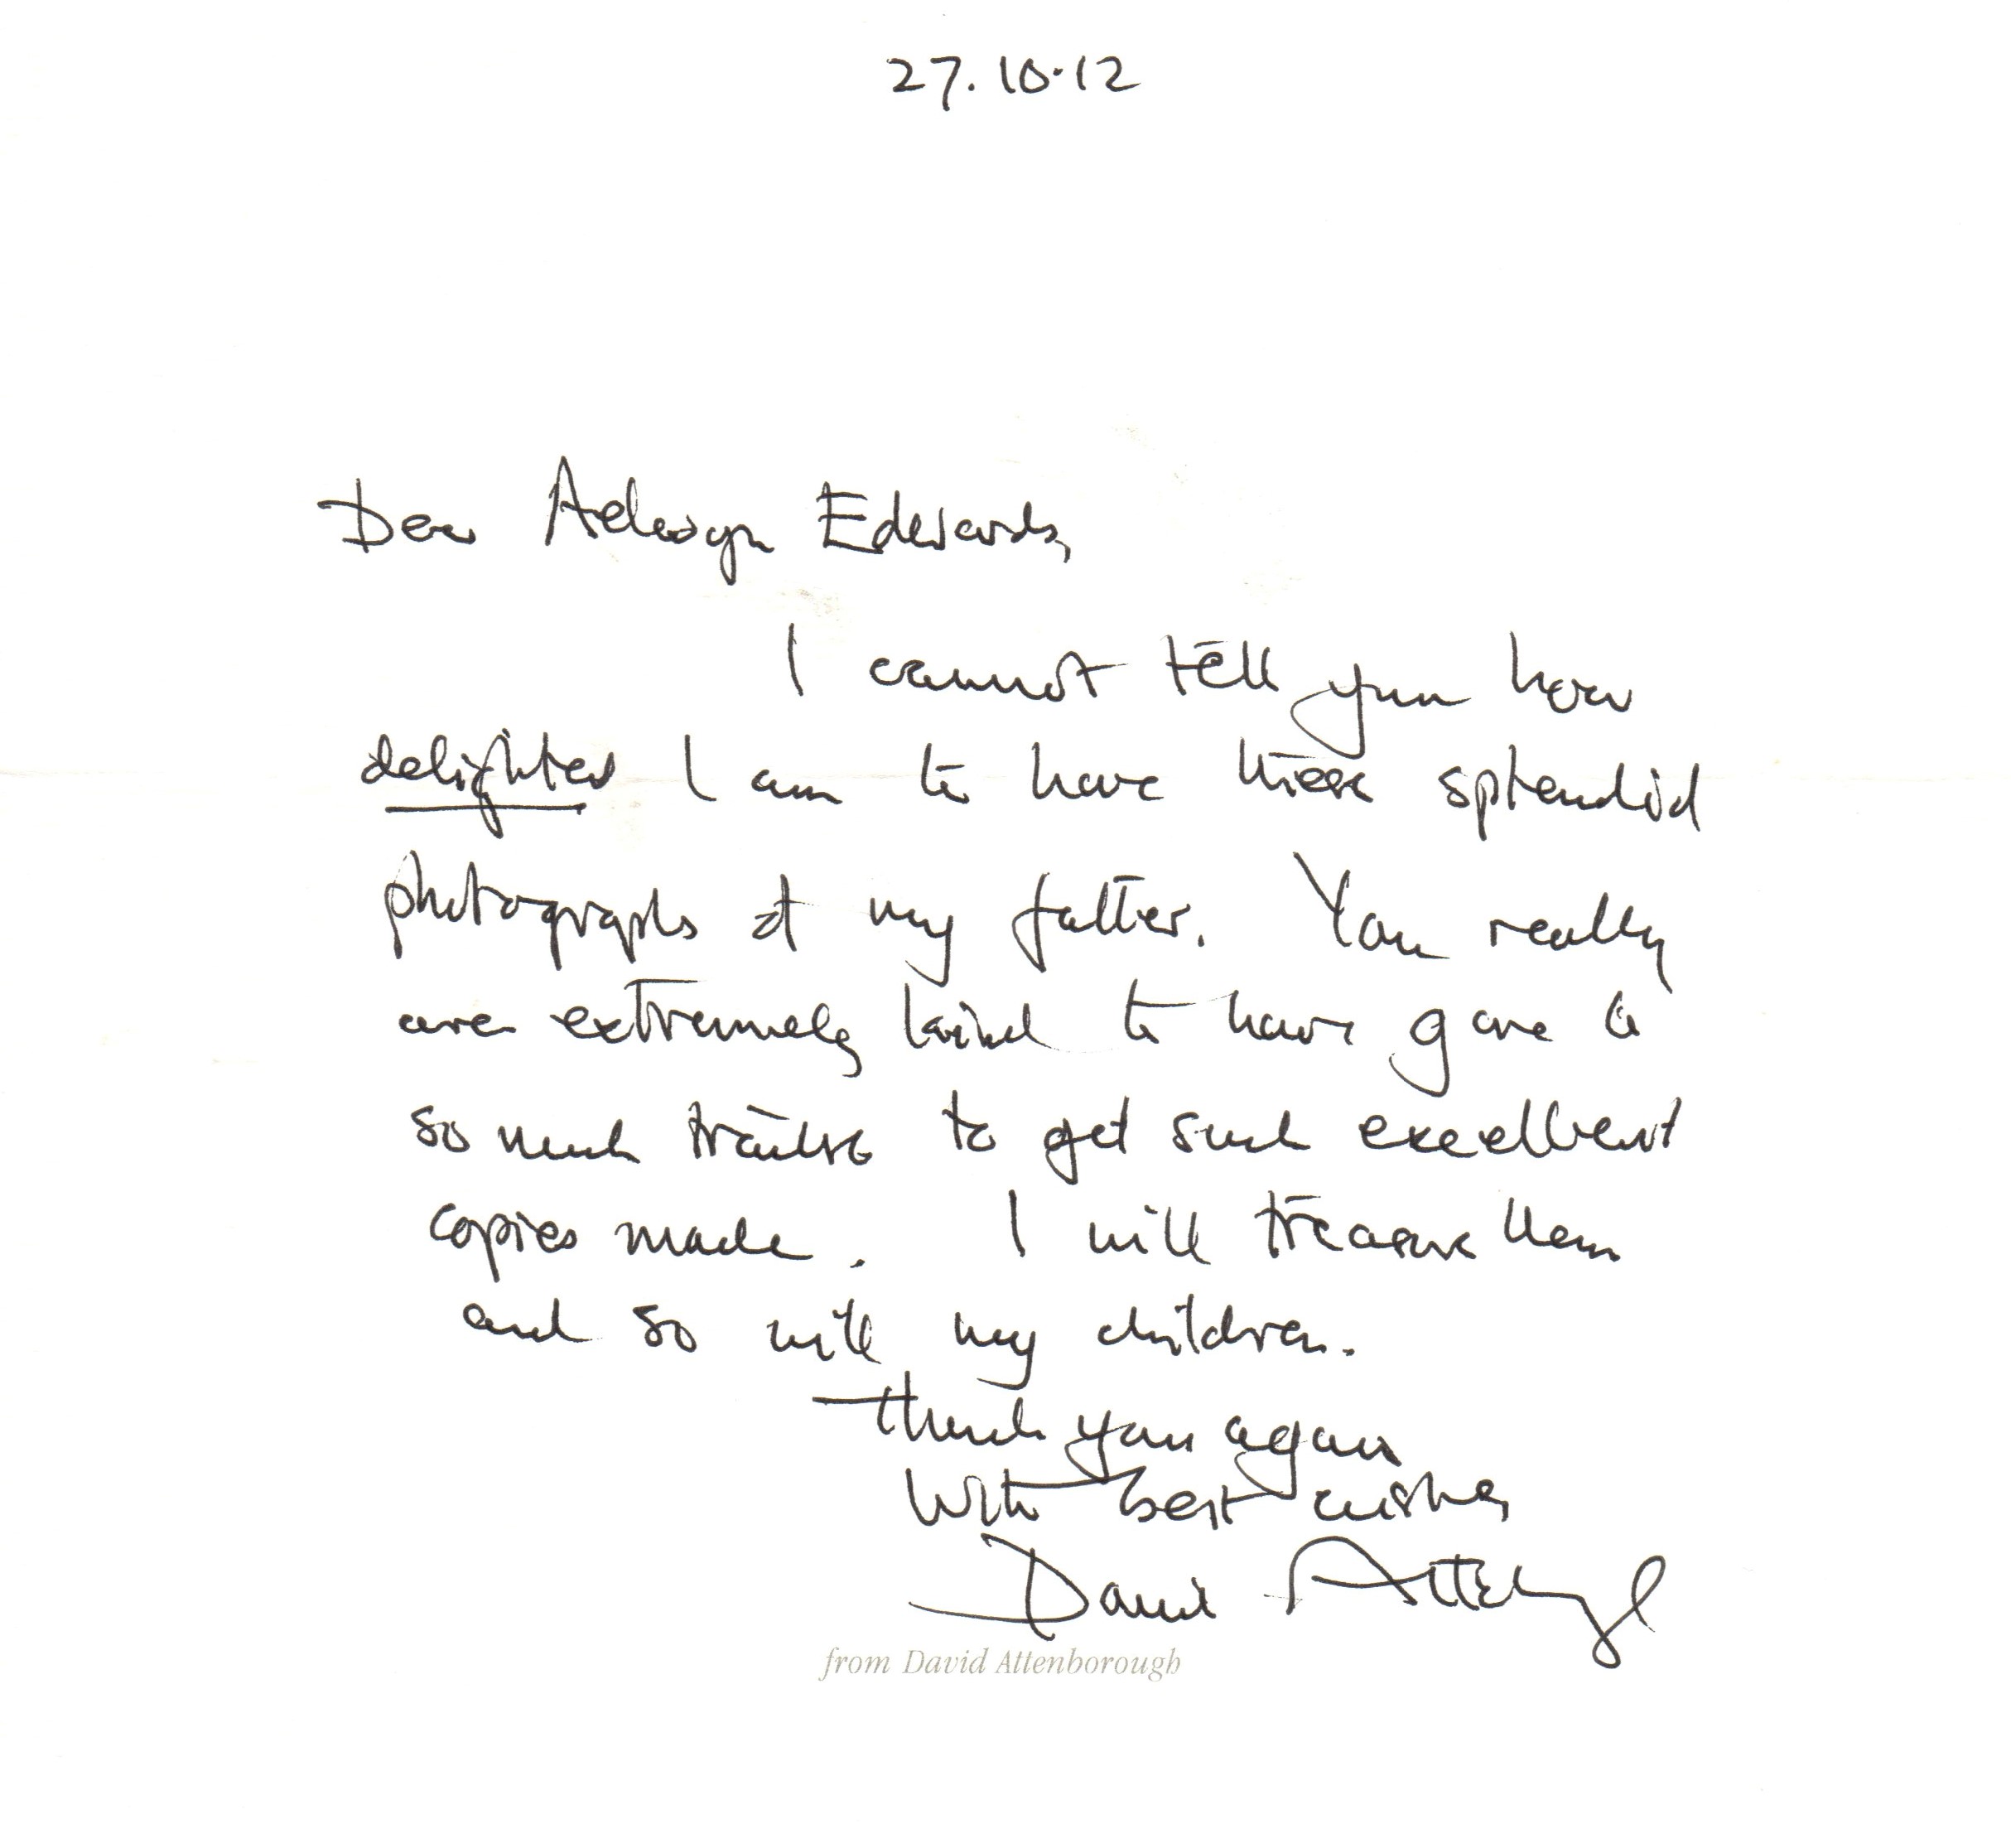 27.10.12
Dear Aelwyn Edwards,
I cannot tell you how
delighted I am to have these splendid
photographs of my father. You really
are extremely kind to have gone to
so much trouble to get such excellent
copies made. I will treasure them
and so will my children.
Thank you again
With best wishes
David Attenborough
from David Attenborough